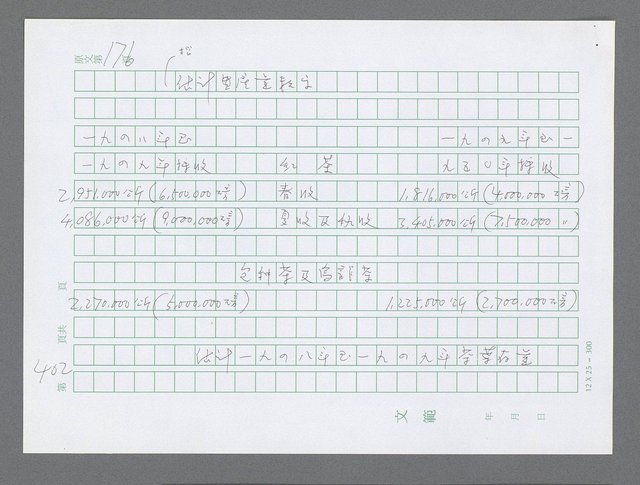 原文第176頁
估計生產量數字
一九四八年至 一九四九年至一
一九四九年採收 紅茶 九五〇年採收
2,951,000公斤(6,500,000磅) 春收 1,816,000公斤(4,000,000磅)
4,086,000公斤(9,000,000磅) 夏收及秋收 3,405,000公斤(7,500,000〃)
包種茶及烏龍茶
2,270,000公斤(5,000,000磅) 1,225,000公斤(2,700,000磅)
估計一九四八年至一九四九年茶葉存量
第402頁共 頁
12X25=300
文範 年 月 日